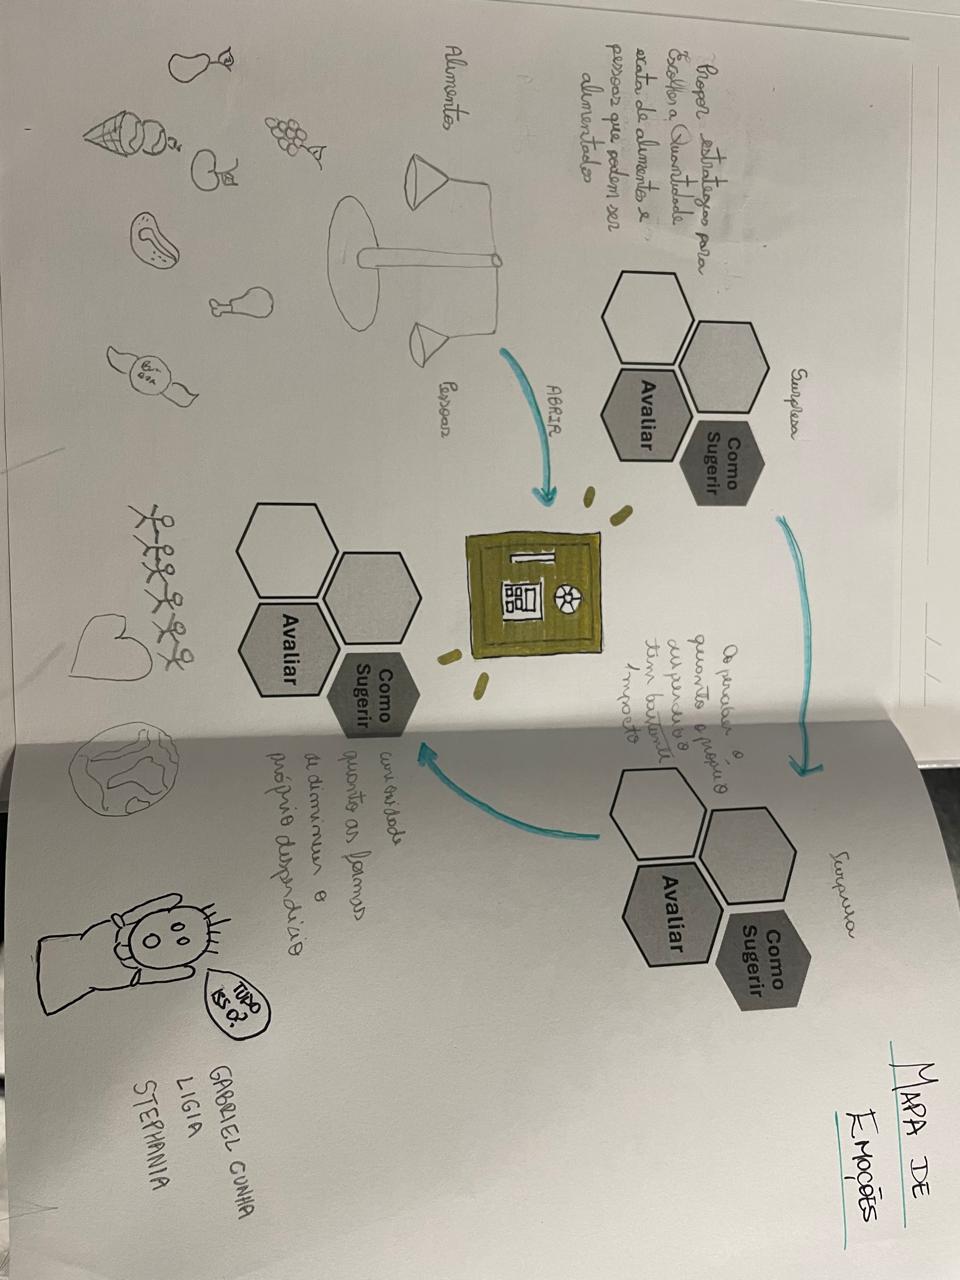 MAPA DE
EMOÇÕES
Surpresa
Como
Sugerir
Avaliar
Propor estrategias para
Escolher a Quantidade
exata de alimentos e
pessoas que podem ser
alimentados
Surpresa
Como
Sugerir
Avaliar
Ao perceber o
quanto o próprio
disperdício
tem bastante
Impacto
ABRIR
Alimentos
Pessoas
Como
Sugerir
Avaliar
curiosidade
quanto as formas
de diminuir o
próprio desperdício
TUDO
ISSO?
GABRIEL CUNHA
LIGIA
STEPHANIA